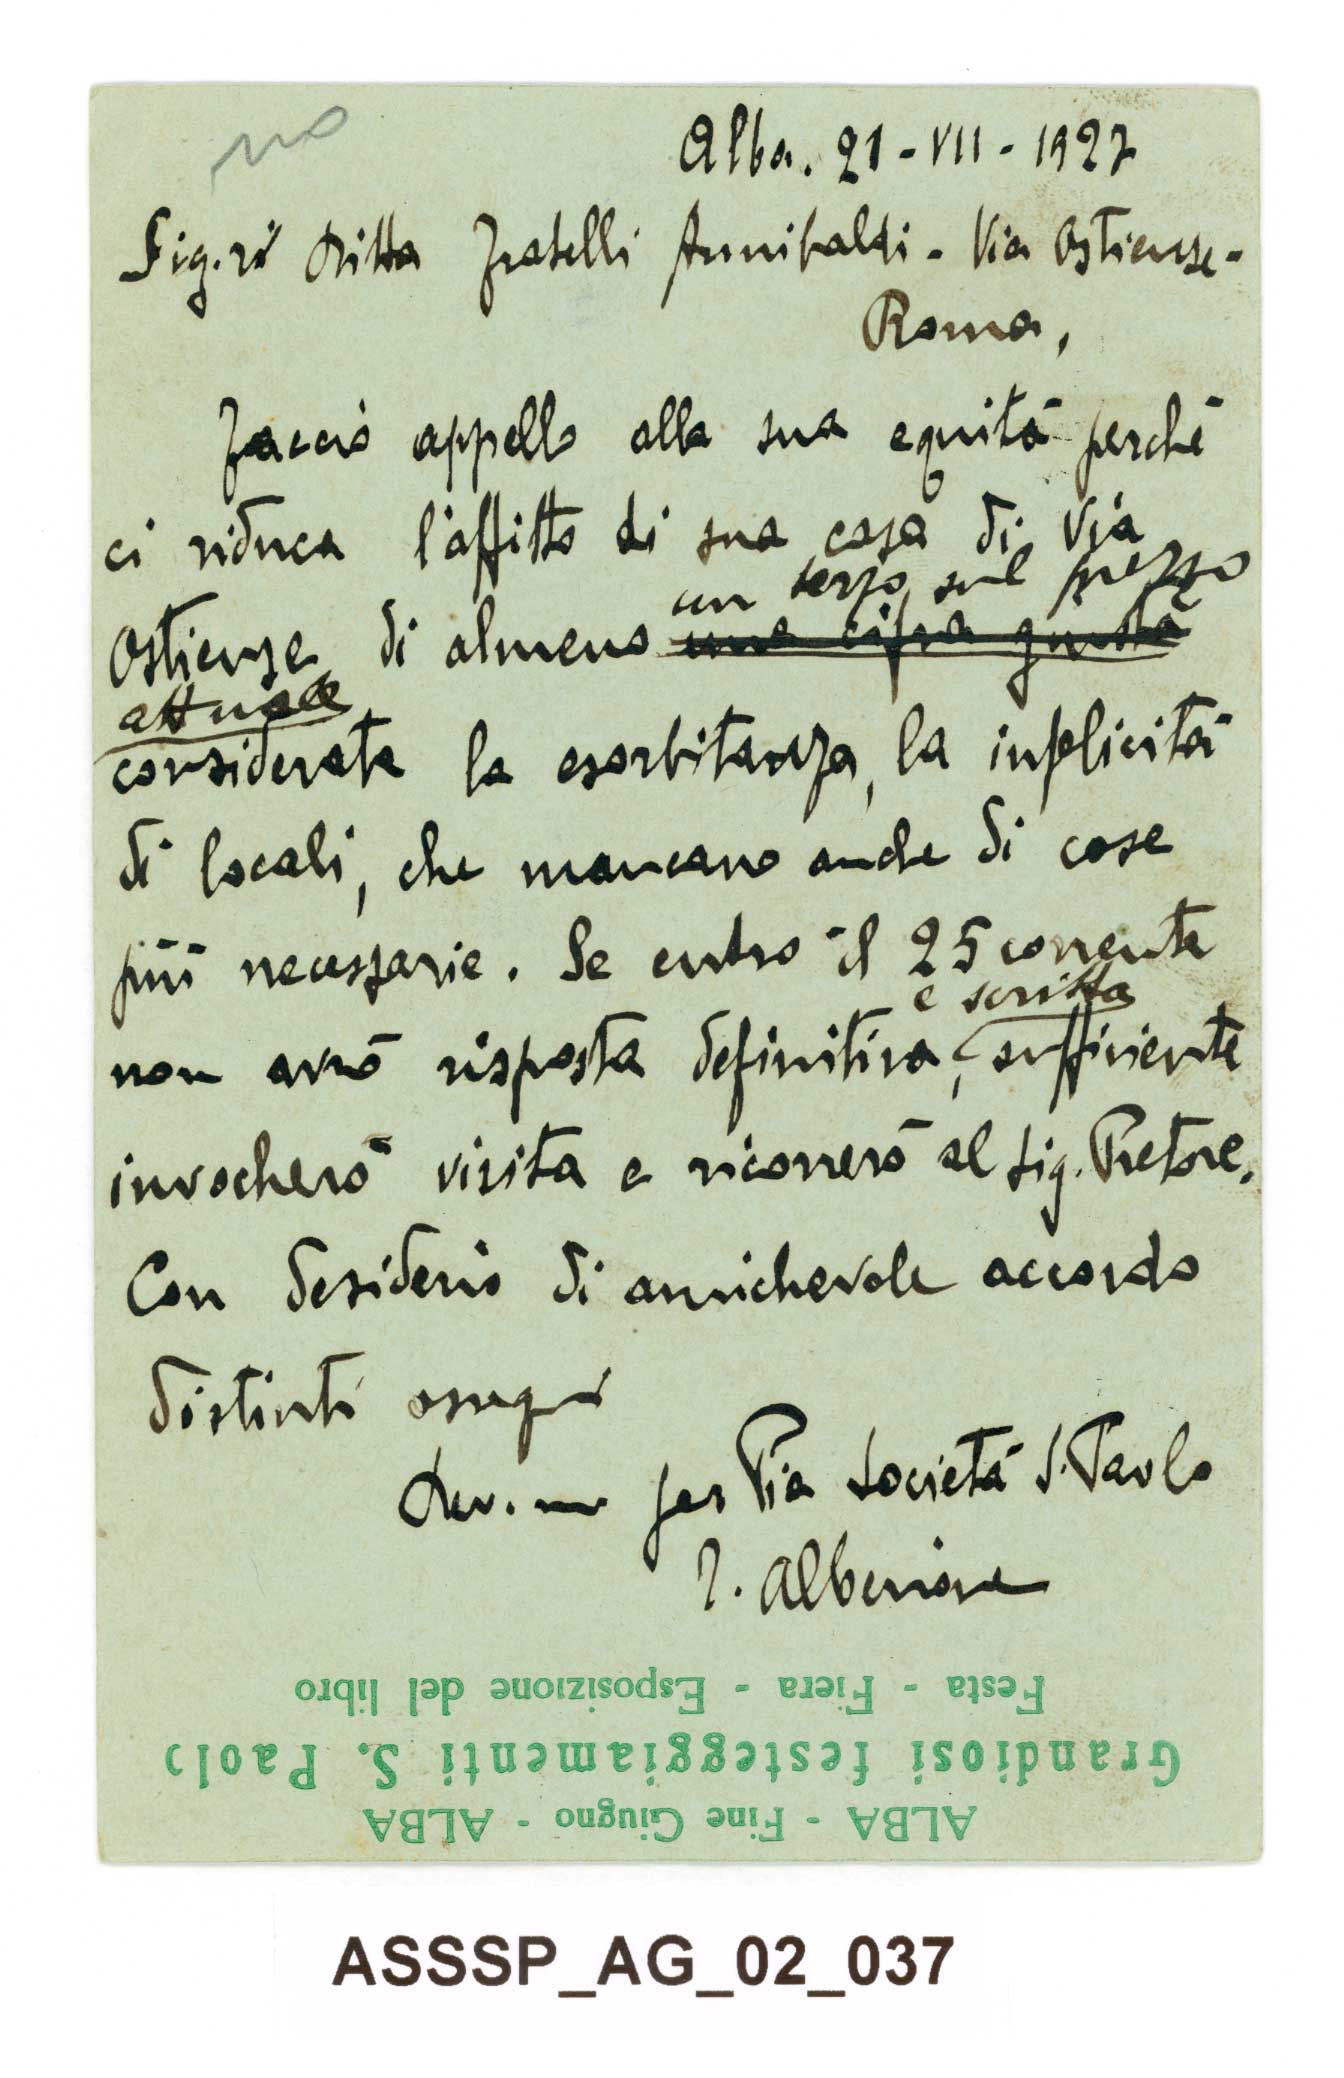 no
Alba. 21-VII-1927
Sig.ri Ditta Fratelli Annibaldi - Via Ostiense -
Roma,
Faccio appello alla sua equità perchè
ci riduca l'affitto di sua casa di Via
un terzo sul prezzo
Ostiense di almeno una cifra giusta
attuale
considerata la esorbitanza, la infelicità
di locali, che mancano anche di cose
più necessarie. Se entro il 25 corrente
e scritta
non avrò risposta definitiva, sufficiente
invocherò visita e ricorrerò al Sig. Pretore.
Con desiderio di amichevole accordo
distinti ossequi
Dev.mo per Pia Società S. Paolo
T. Alberione
ALBA - Fine Giugno - ALBA
Grandiosi festeggiamenti S. Paolo
Festa - Fiera - Esposizione del libro
ASSSP_AG_02_037